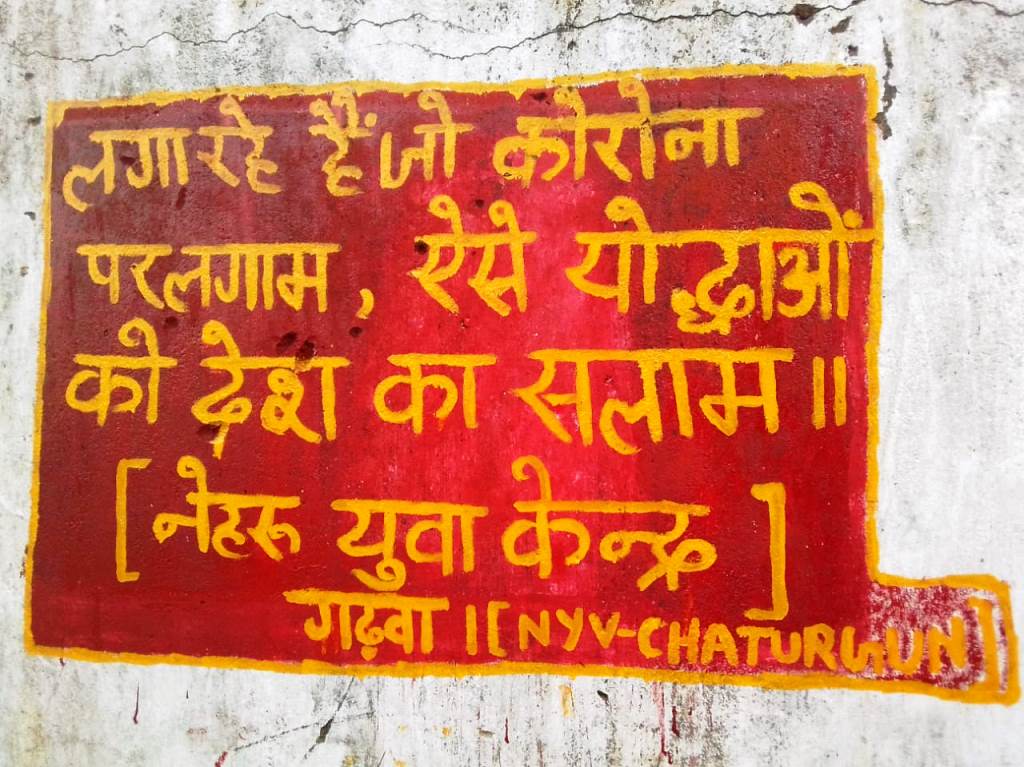 लगा रहे हैं जो कोरोना
पर लगाम, ऐसे योद्धाओं
को देश का सलाम॥
[नेहरू युवा केन्द्र]
गढ़वा ।[NYV-CHATURGUN]